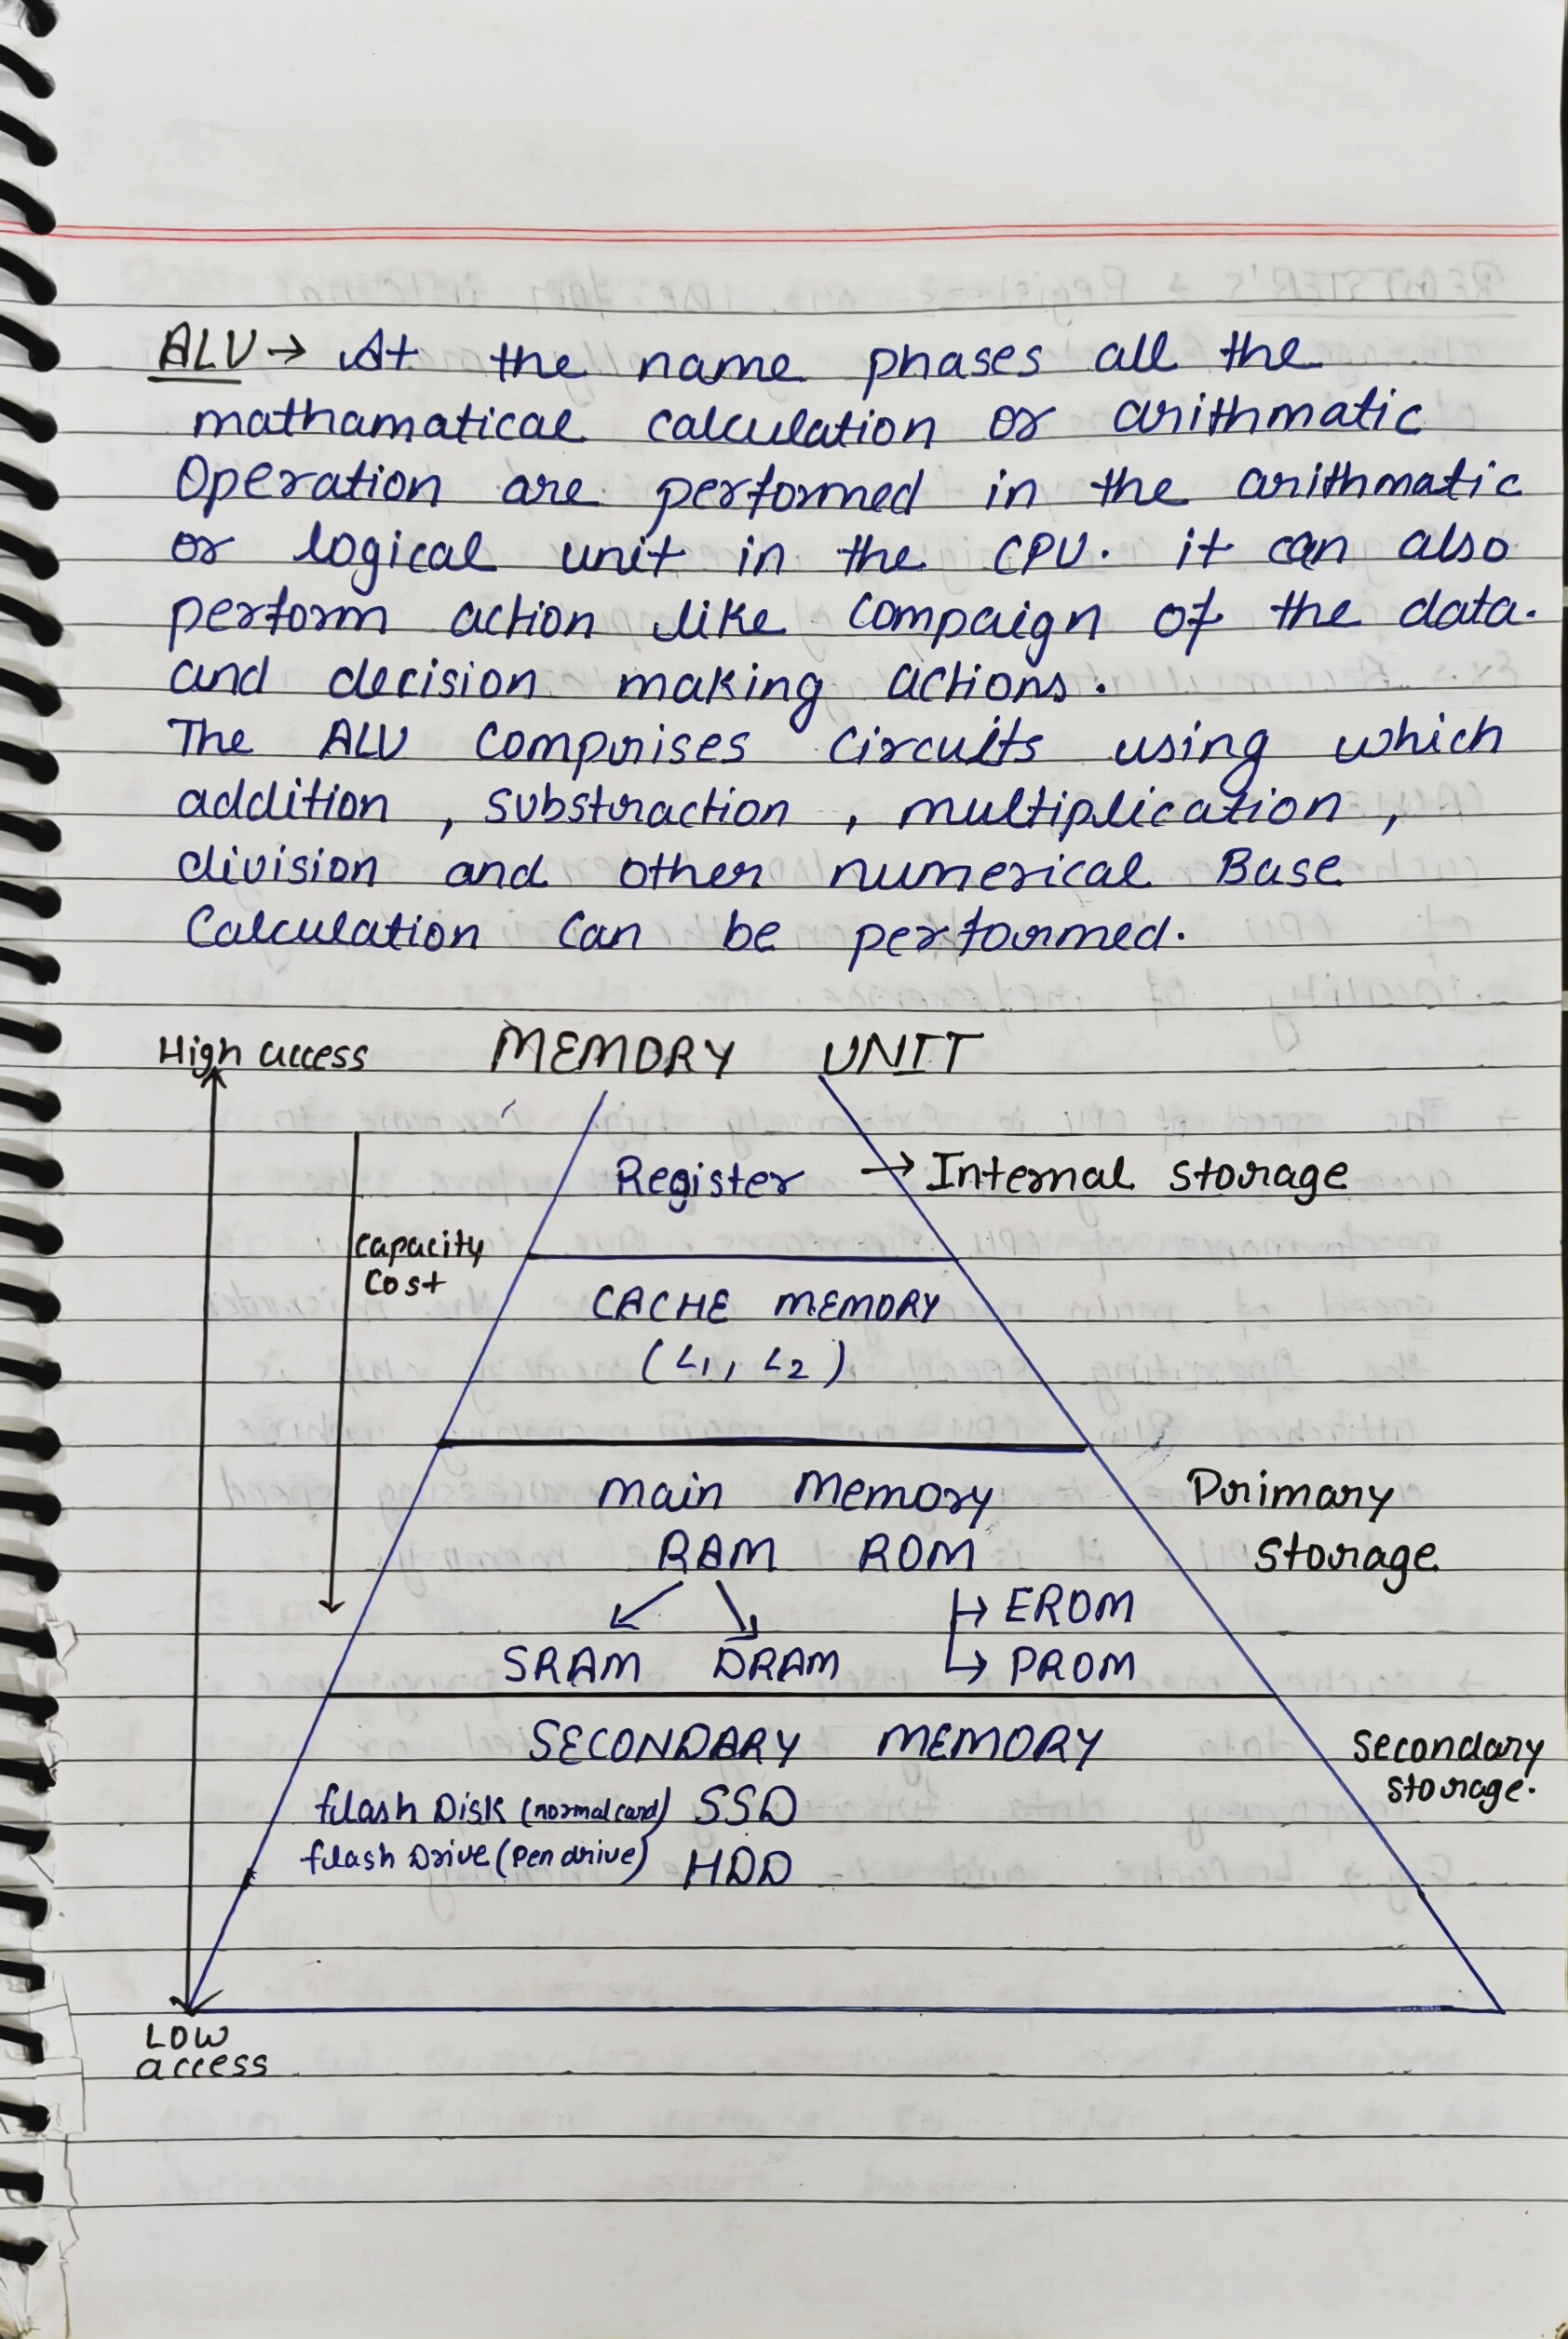 ALU → At the name phases all the
mathamatical calculation or arithmatic
Operation are performed in the arithmatic
or logical unit in the CPU. it can also
perform action like Compaign of the data.
and decision making actions.
The ALU Comprises Circuits using which
addition , substraction , multiplication ,
division and other numerical Base
Calculation Can be performed.
High access MEMORY UNIT
Register → Internal storage
Capacity
Cost
CACHE MEMORY
(L1, L2)
Main Memory Primary
RAM ROM Storage
↳ EROM
SRAM DRAM ↳ PROM
SECONDARY MEMORY Secondary
storage.
flash Disk (normal card) SSD
flash Drive (Pen drive) HDD
LOW
access